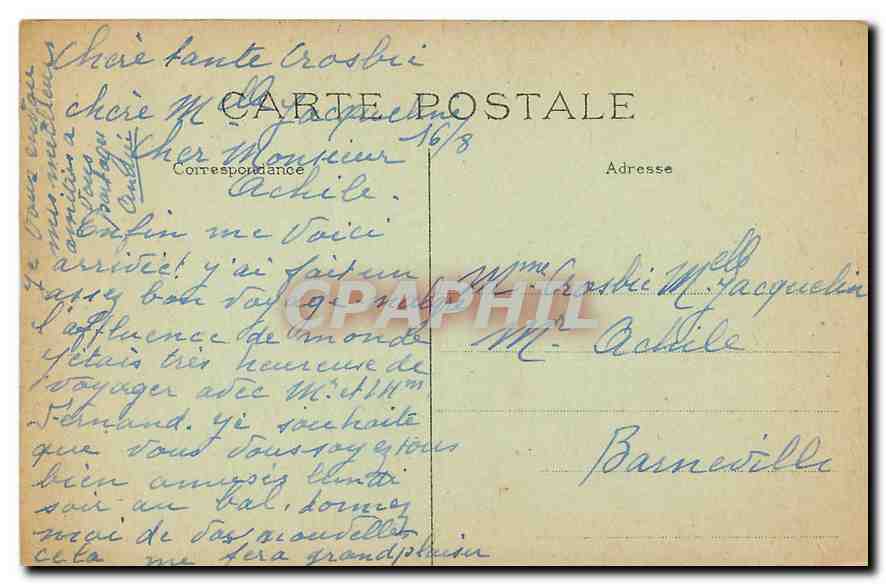 Cheré tante Crosbie
CARTE POSTALE
cheré Melle Jacqueline
16/8
Cher Monsieur
Correspondance
Adresse
Achile.
Enfin me voici
arrivée! j'ai fait un
assez bon voyage malgré
l'affluence de monde
j'étais très heureuse de
voyager avec Mr et Mme
Fernand. je souhaite
que vous vous soyez tous
bien amusés lundi
soir au bal. donnez
moi de vos nouvelles
cela me fera grand plaisir
je vous envoie
mes meilleurs
amitiés a
vous
partager
CPAPHIL
Mme Crosbie Melle Jacquelin
Mr Achile
Barneville